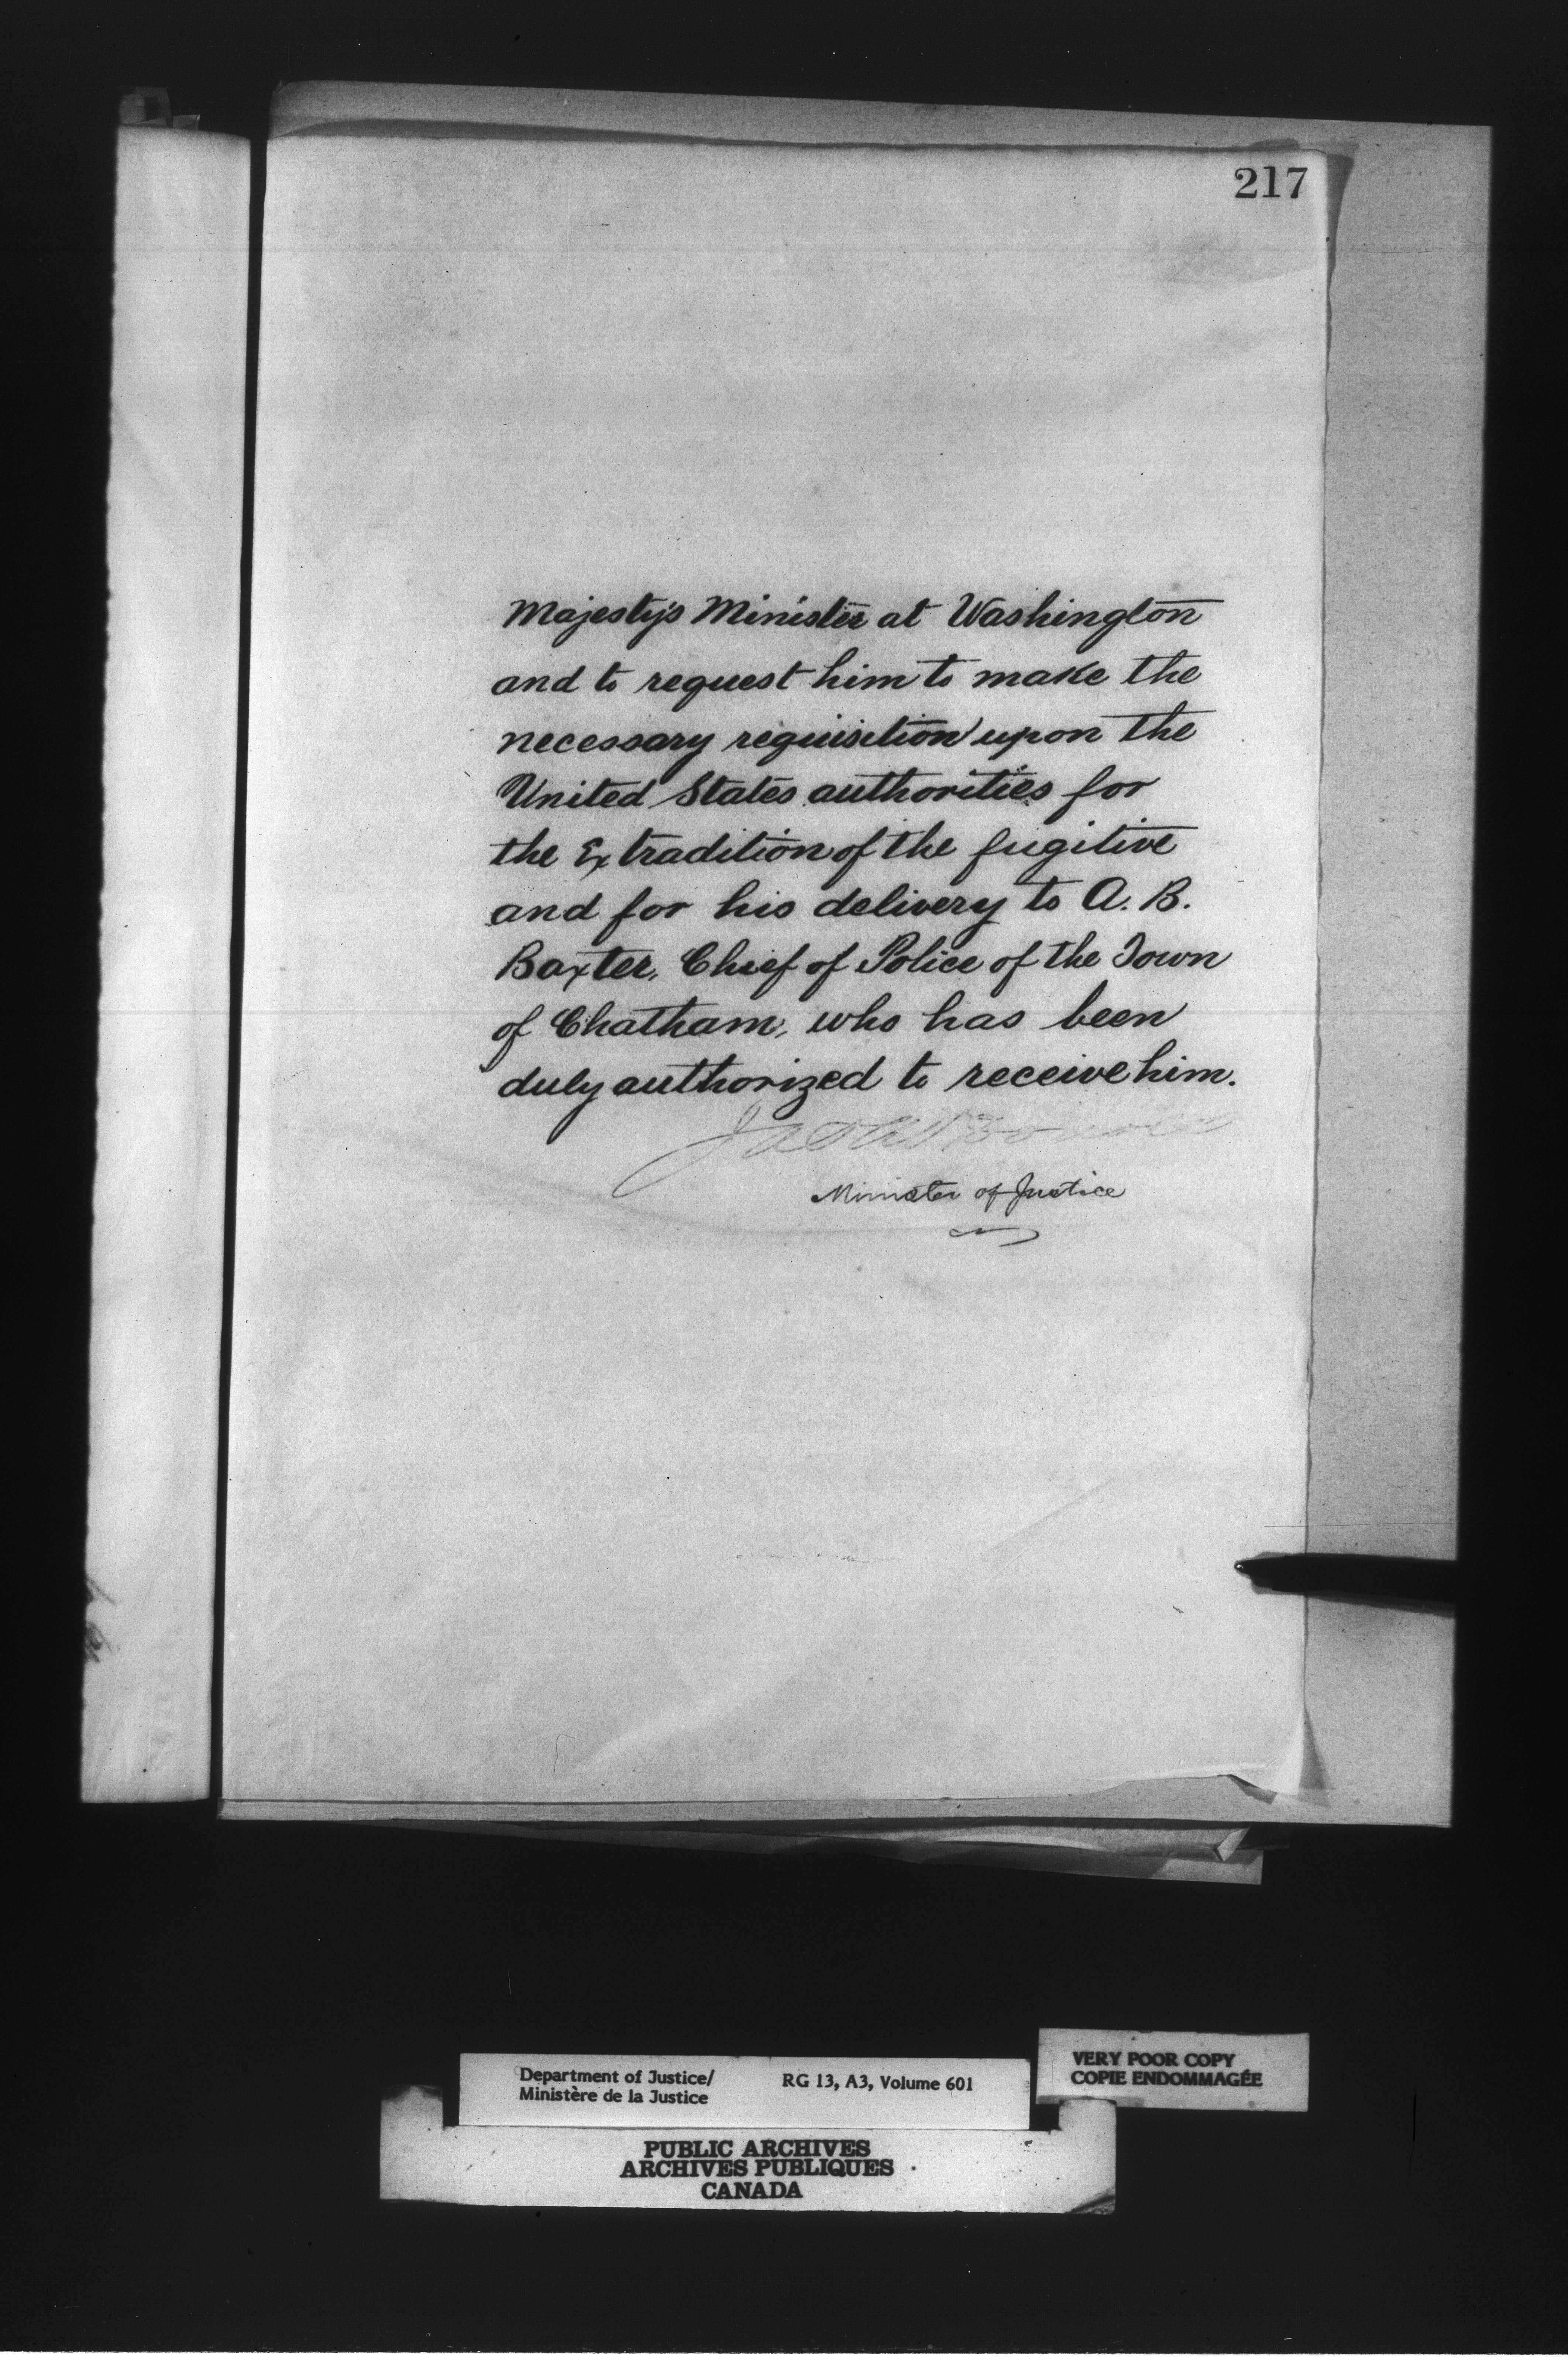 217
Majesty's Minister at Washington
and to request him to make the
necessary requisition upon the
United States authorities for
the Extradition of the fugitive
and for his delivery to A. B.
Baxter, Chief of Police of the Town
of Chatham, who has been
duly authorized to receive him.
Minister of Justice
Department of Justice/ RG 13, A3, Volume 601
Ministère de la Justice
VERY POOR COPY
COPIE ENDOMMAGÉE
PUBLIC ARCHIVES
ARCHIVES PUBLIQUES
CANADA